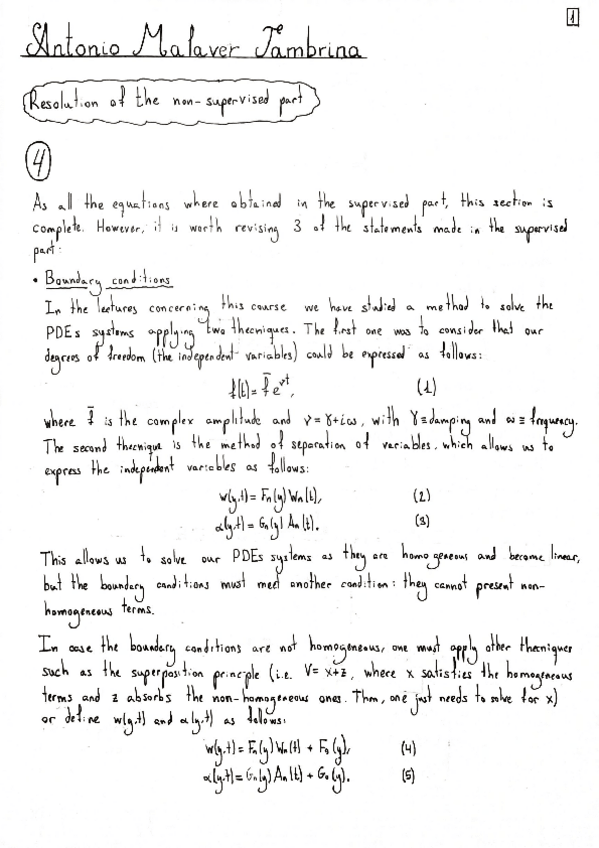 1
Antonio Malaver Tambrina
Resolution of the non-supervised part
4
As all the equations where obtained in the supervised part, this section is
complete. However, it is worth revising 3 of the statements made in the supervised
part:
• Boundary conditions
In the lectures concerning this course we have studied a method to solve the
PDEs systems applying two thecniques. The first one was to consider that our
degrees of freedom (the independent variables) could be expressed as follows:
f(t) = f̄ e^{νt}, (1)
where f̄ is the complex amplitude and ν = γ+iω, with γ ≡ damping and ω ≡ frequency.
The second thecnique is the method of separation of variables, which allows us to
express the independent variables as follows:
w(y,t) = Fₙ(y) Wₙ(t), (2)
α(y,t) = Gₙ(y) Aₙ(t). (3)
This allows us to solve our PDEs systems as they are homogeneous and become linear,
but the boundary conditions must meet another condition: they cannot present non-
homogeneous terms.
In case the boundary conditions are not homogeneous, one must apply other thecniques
such as the superposition principle (i.e. V = x+z, where x satisfies the homogeneous
terms and z absorbs the non-homogeneous ones. Then, one just needs to solve for x)
or define w(y,t) and α(y,t) as follows:
w(y,t) = Fₙ(y) Wₙ(t) + F₀(y), (4)
α(y,t) = Gₙ(y) Aₙ(t) + G₀(y). (5)